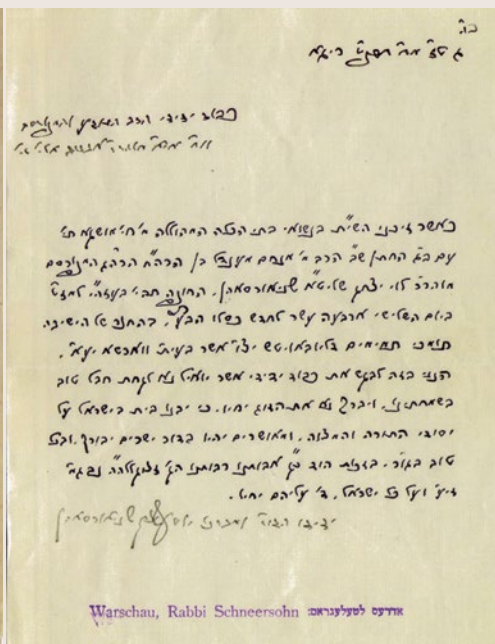 ב"ה
כבוד ידידי הרב
כאשר זיכני השי"ת בנשואי בתי הכלה המהוללה מ' חי' מושקא תי'
עם ב"ג החתן שי' הרב מ' מנחם מענדל בן הרה"ח הרה"ג המפורסם
מוהר"ר לוי יצחק שליט"א שניאורסאהן, החופה תהי' בעזה"י למז"ט
ביום השלישי ארבעה עשר לחדש כסלו הבע"ל, של הישיבה
תומכי תמימים דליובאוויטש יצ"ו אשר בעי"ת ווארשא יע"א.
הנני בזה לבקש את כבוד ידידי אשר יואיל נא לקחת חבל טוב
בשמחתינו, ויברך נא את הזוג יחיו, כי יבנו בית בישראל על
יסודי התורה והמצוה, ומאושרים יהיו בדור ישרים יבורך, ובכל
טוב בגו"ר. בזכות הוד כ"ק אבותינו רבותינו הק' זצוקללה"ה נבג"מ
זי"ע ועל כל ישראל, ד' עליהם יחיו.
ידידו הדו"ש ומברכו יוסף יצחק שניאורסאהן
Warschau, Rabbi Schneersohn אדרעס לטעלעגראם: